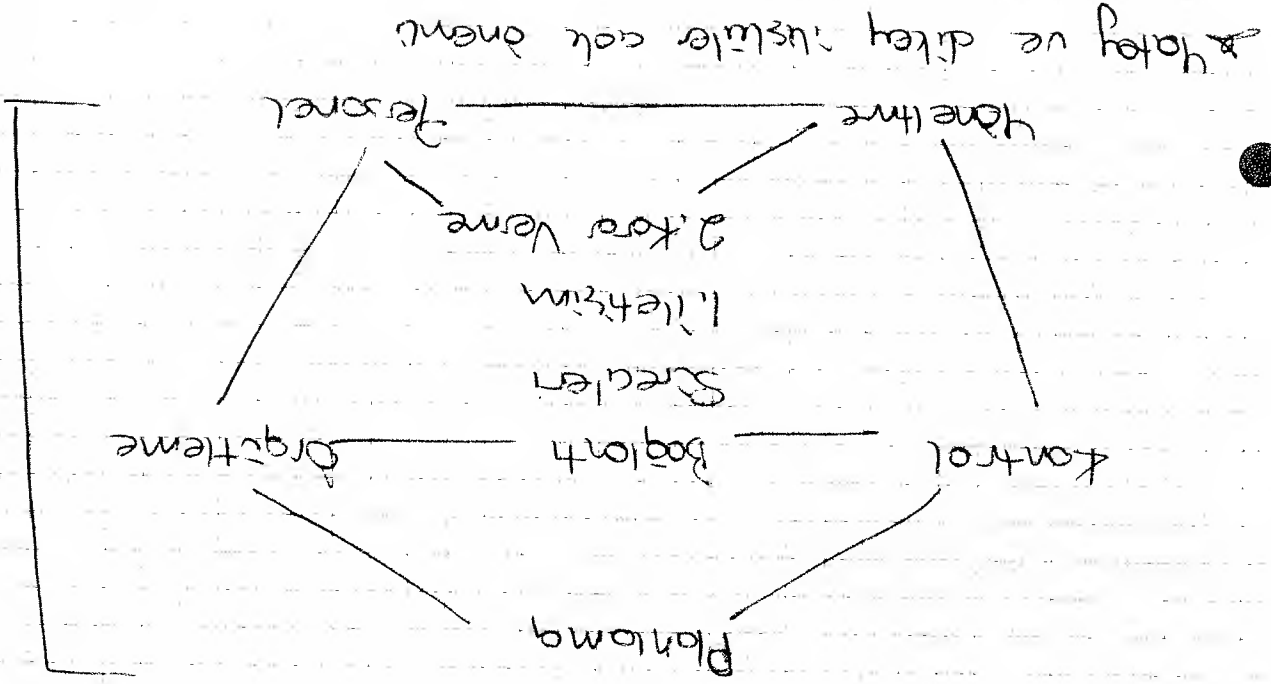 Planlama
Kontrol Bağlantı Örgütleme
Süreçleri
1. İletişim
2. Karar Verme
Yöneltme Personel
* Yatay ve dikey ilişkiler çok önemli